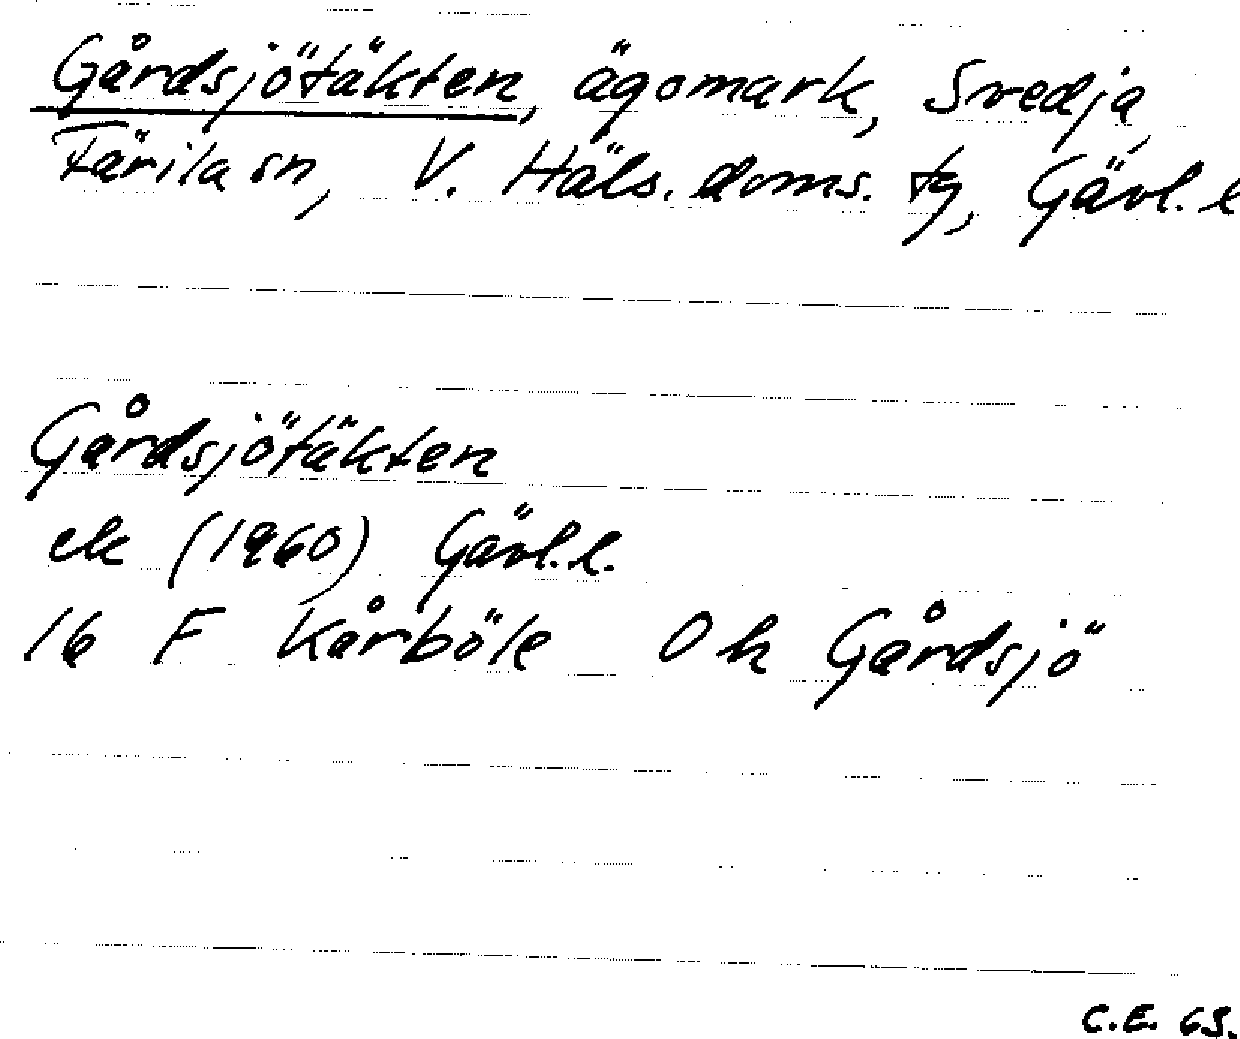 Gårdsjötäkten, ägomark, Svedja,
Färila sn, V. Häls. doms. tg, Gävl. l
Gårdsjötäkten
ek (1960) Gävl. l.
16 F Kårböle O h Gårdsjö
C.E. 65.